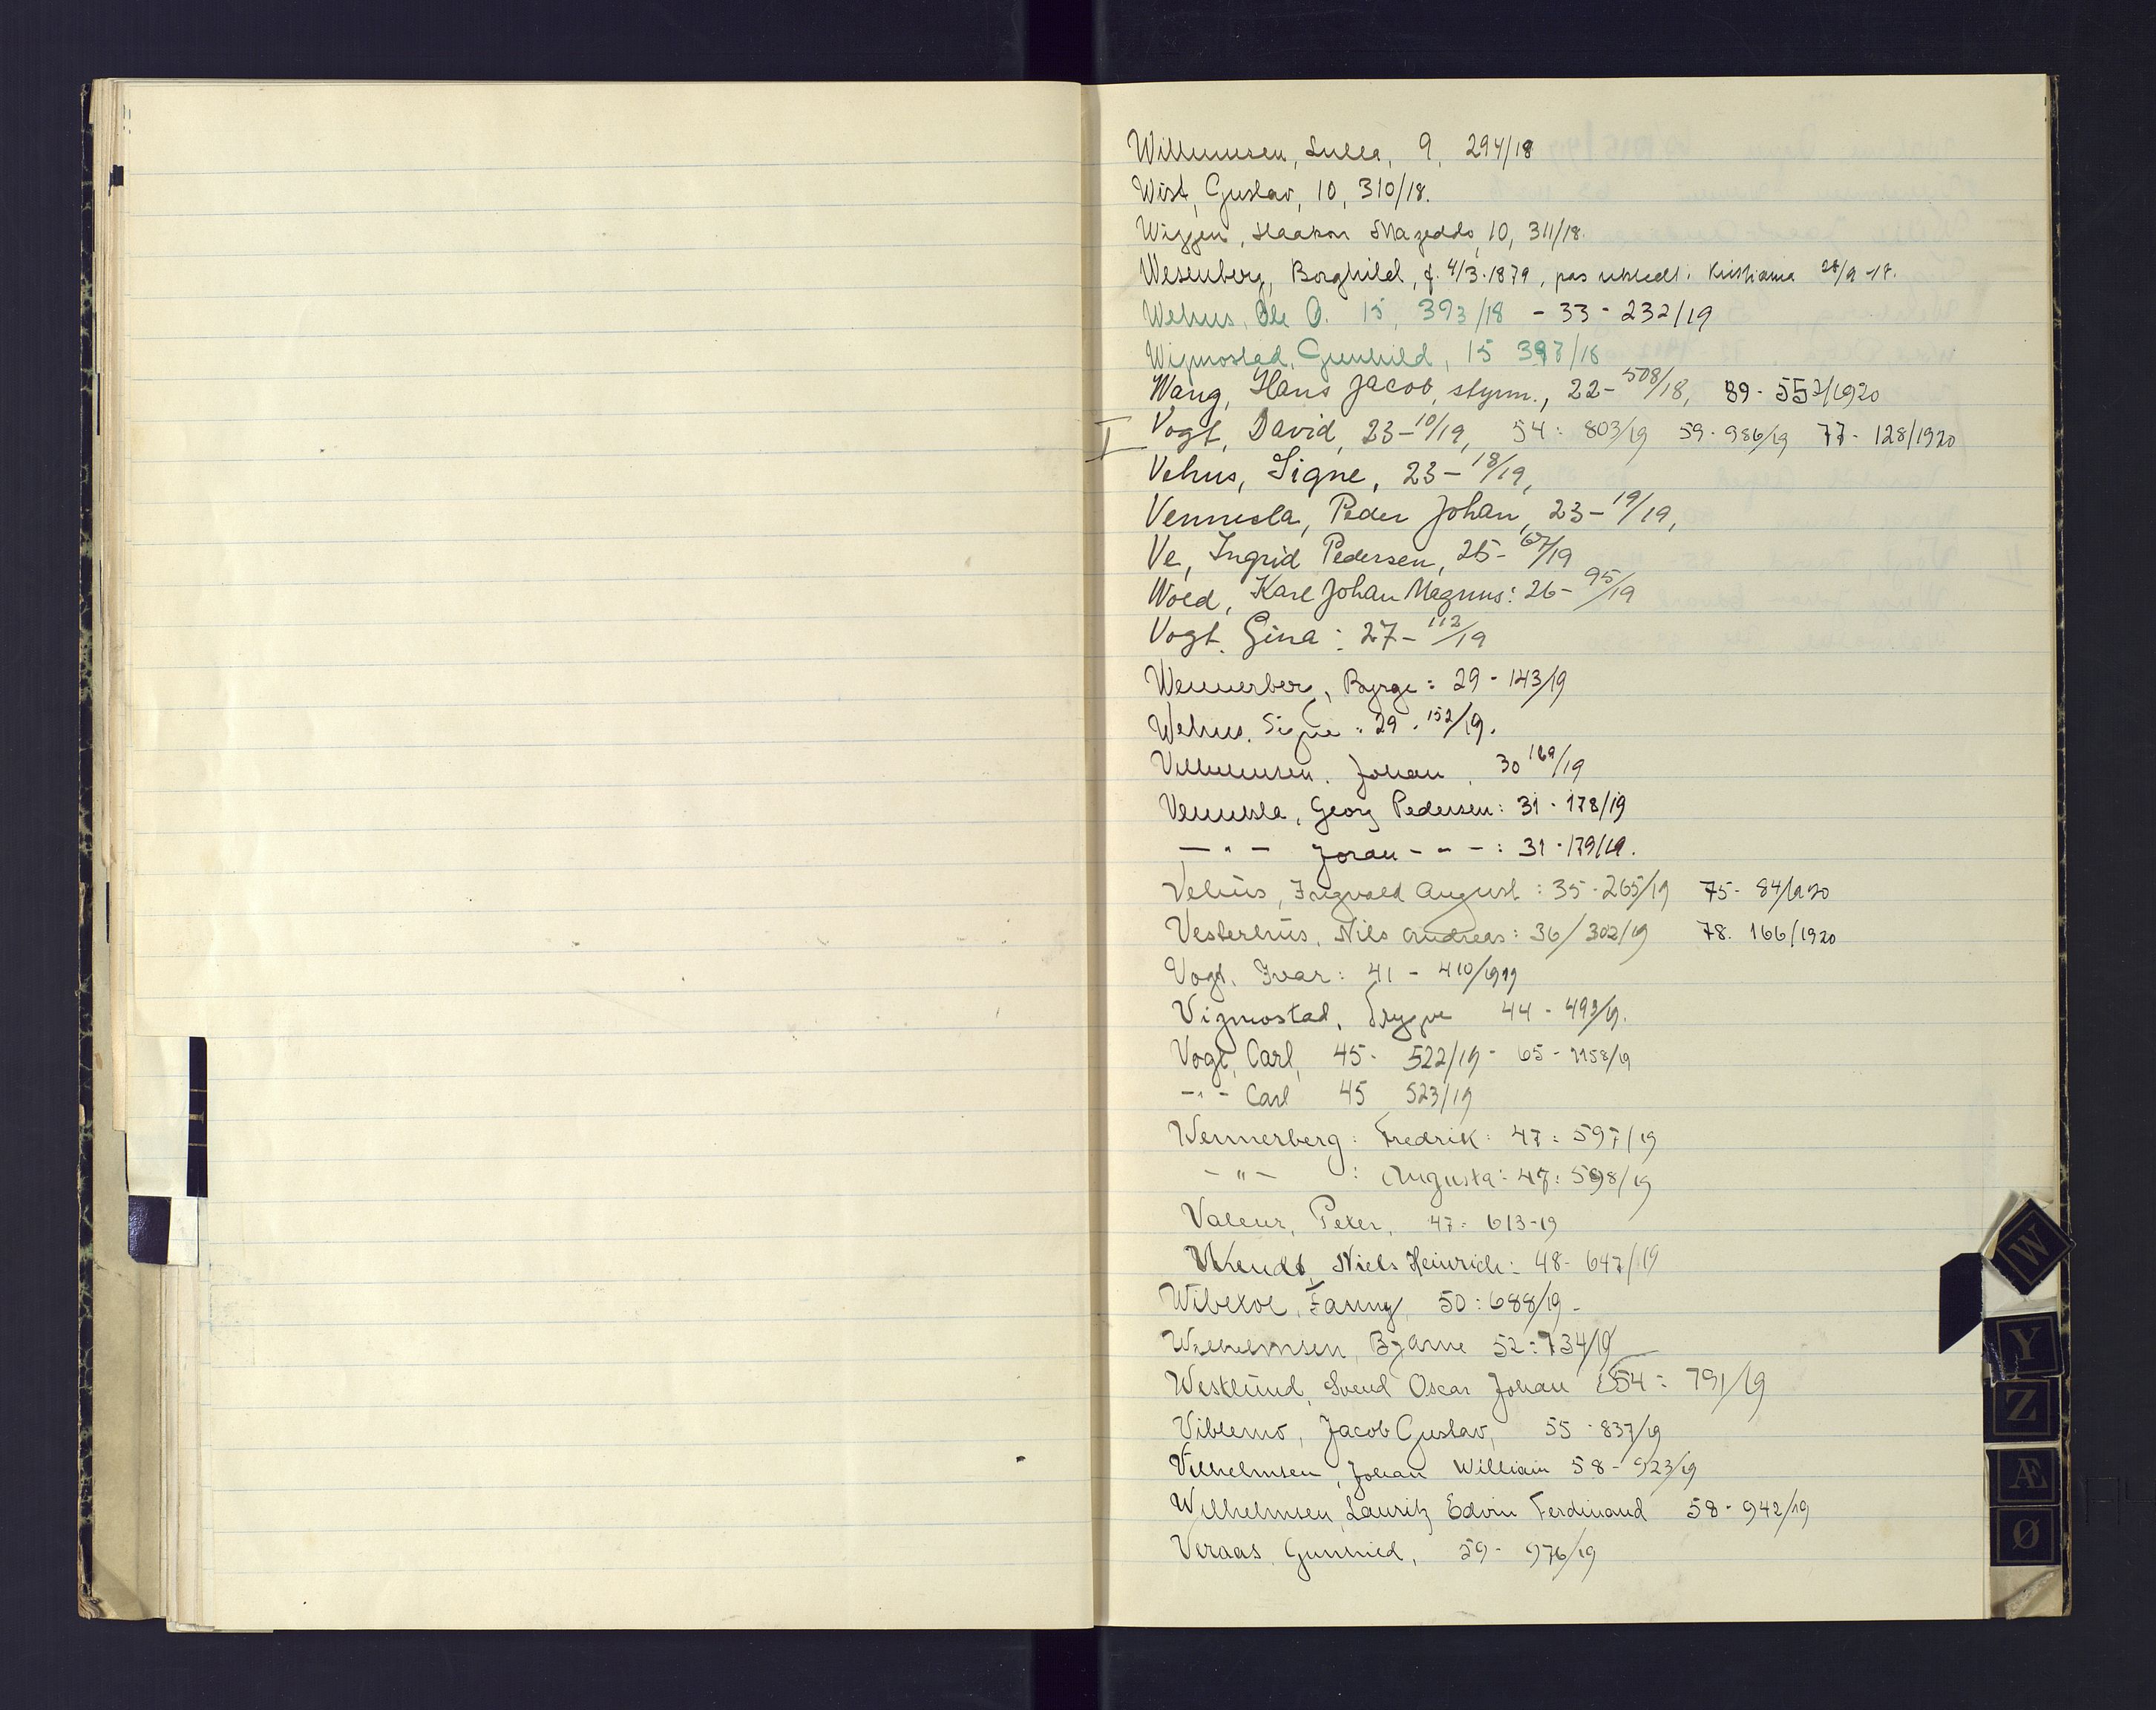 Willumsen, Lulla, 9, 294/18
Wist, Gustav, 10, 310/18.
Wiggen, Haakon 10, 311/18.
Wesenberg, Borghild, f. 4/3-1879, pas utstedt i Kristiania 28/9-18.
Wehus, Ole O. 15, 393/18 - 33 - 232/19
Wigmostad, Gunhild, 15 397/18
Wang, Hans Jacob, styrm., 22-508/18, 89 - 557/1920
I Vogt, David, 23-10/19, 54: 803/19 59-986/19 77- 128/1920
Vehus, Signe, 23-18/19,
Vennesla, Peder Johan, 23-19/19,
Ve, Ingrid Pedersen, 25-67/19
Wold, Karl Johan Magnus: 26-95/19
Vogt, Gina: 27-112/19
Wennerberg, Byrge: 29 - 143/19
Wehus, Signe: 29 - 152/19.
Vilhelmsen, Johan, 30 169/19
Vennesla, Georg Pedersen: 31 - 178/19
— " — Joran - " - : 31 - 179/19.
Vehus, Ingvald August: 35-265/19 75- 84/1920
Vesterhus, Nils Andreas: 36/302/19 78. 166/1920
Vogt, Ivar: 41 - 410/1919
Vigmostad, Trygve 44 - 493/19.
Vogt, Carl, 45- 522/19 - 65-1158/19
-"- Carl 45 523/19
Wennerberg: Fredrik: 47: 597/19
- " - : Augusta: 47: 598/19
Valeur, Peter, 47: 613-19
Wendt, Niels Heinrich: 48- 647/19
Wibetoe, Fanny, 50: 688/19 -
Wilhelmsen, Bjarne 52: 734/19
Westlund, Svend Oscar Johan 54: 791/19
Viblemo, Jacob Gustav, 55 - 837/19
Vilhelmsen, Johan William 58 - 923/19
Wilhelmsen, Lauritz Edvin Ferdinand 58 - 942/19
Veraas, Gunhild, 59- 976/19
W
Y
Z
Æ
Ø